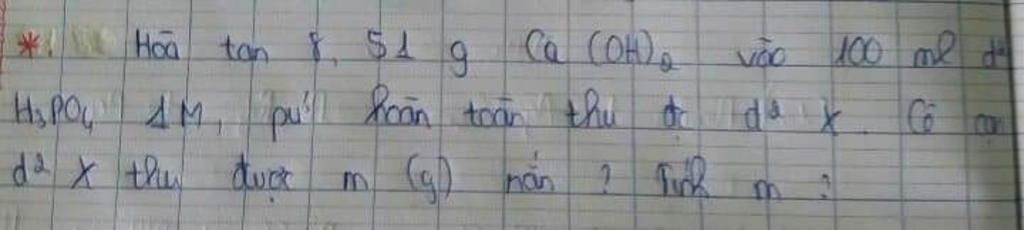 *. Hoà tan 8,51 g Ca(OH)₂ vào 100 ml d²
H₃PO₄ 1M, pư hoàn toàn thu đc d² X. Cô cạn
d² X thu được m (g) rắn ? Tính m ?